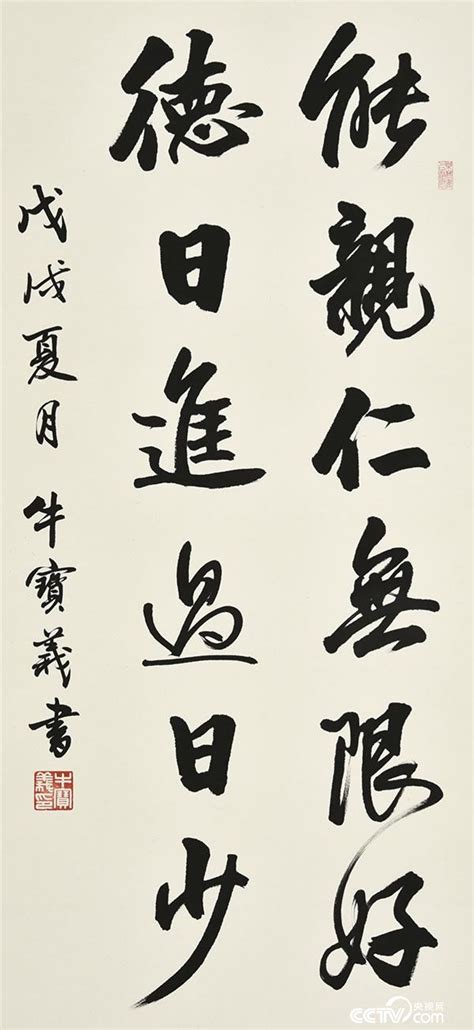 能親仁無限好
德日進過日少
戊戌夏月 牛寶義書
牛寶義印
央视网
CCTV.com